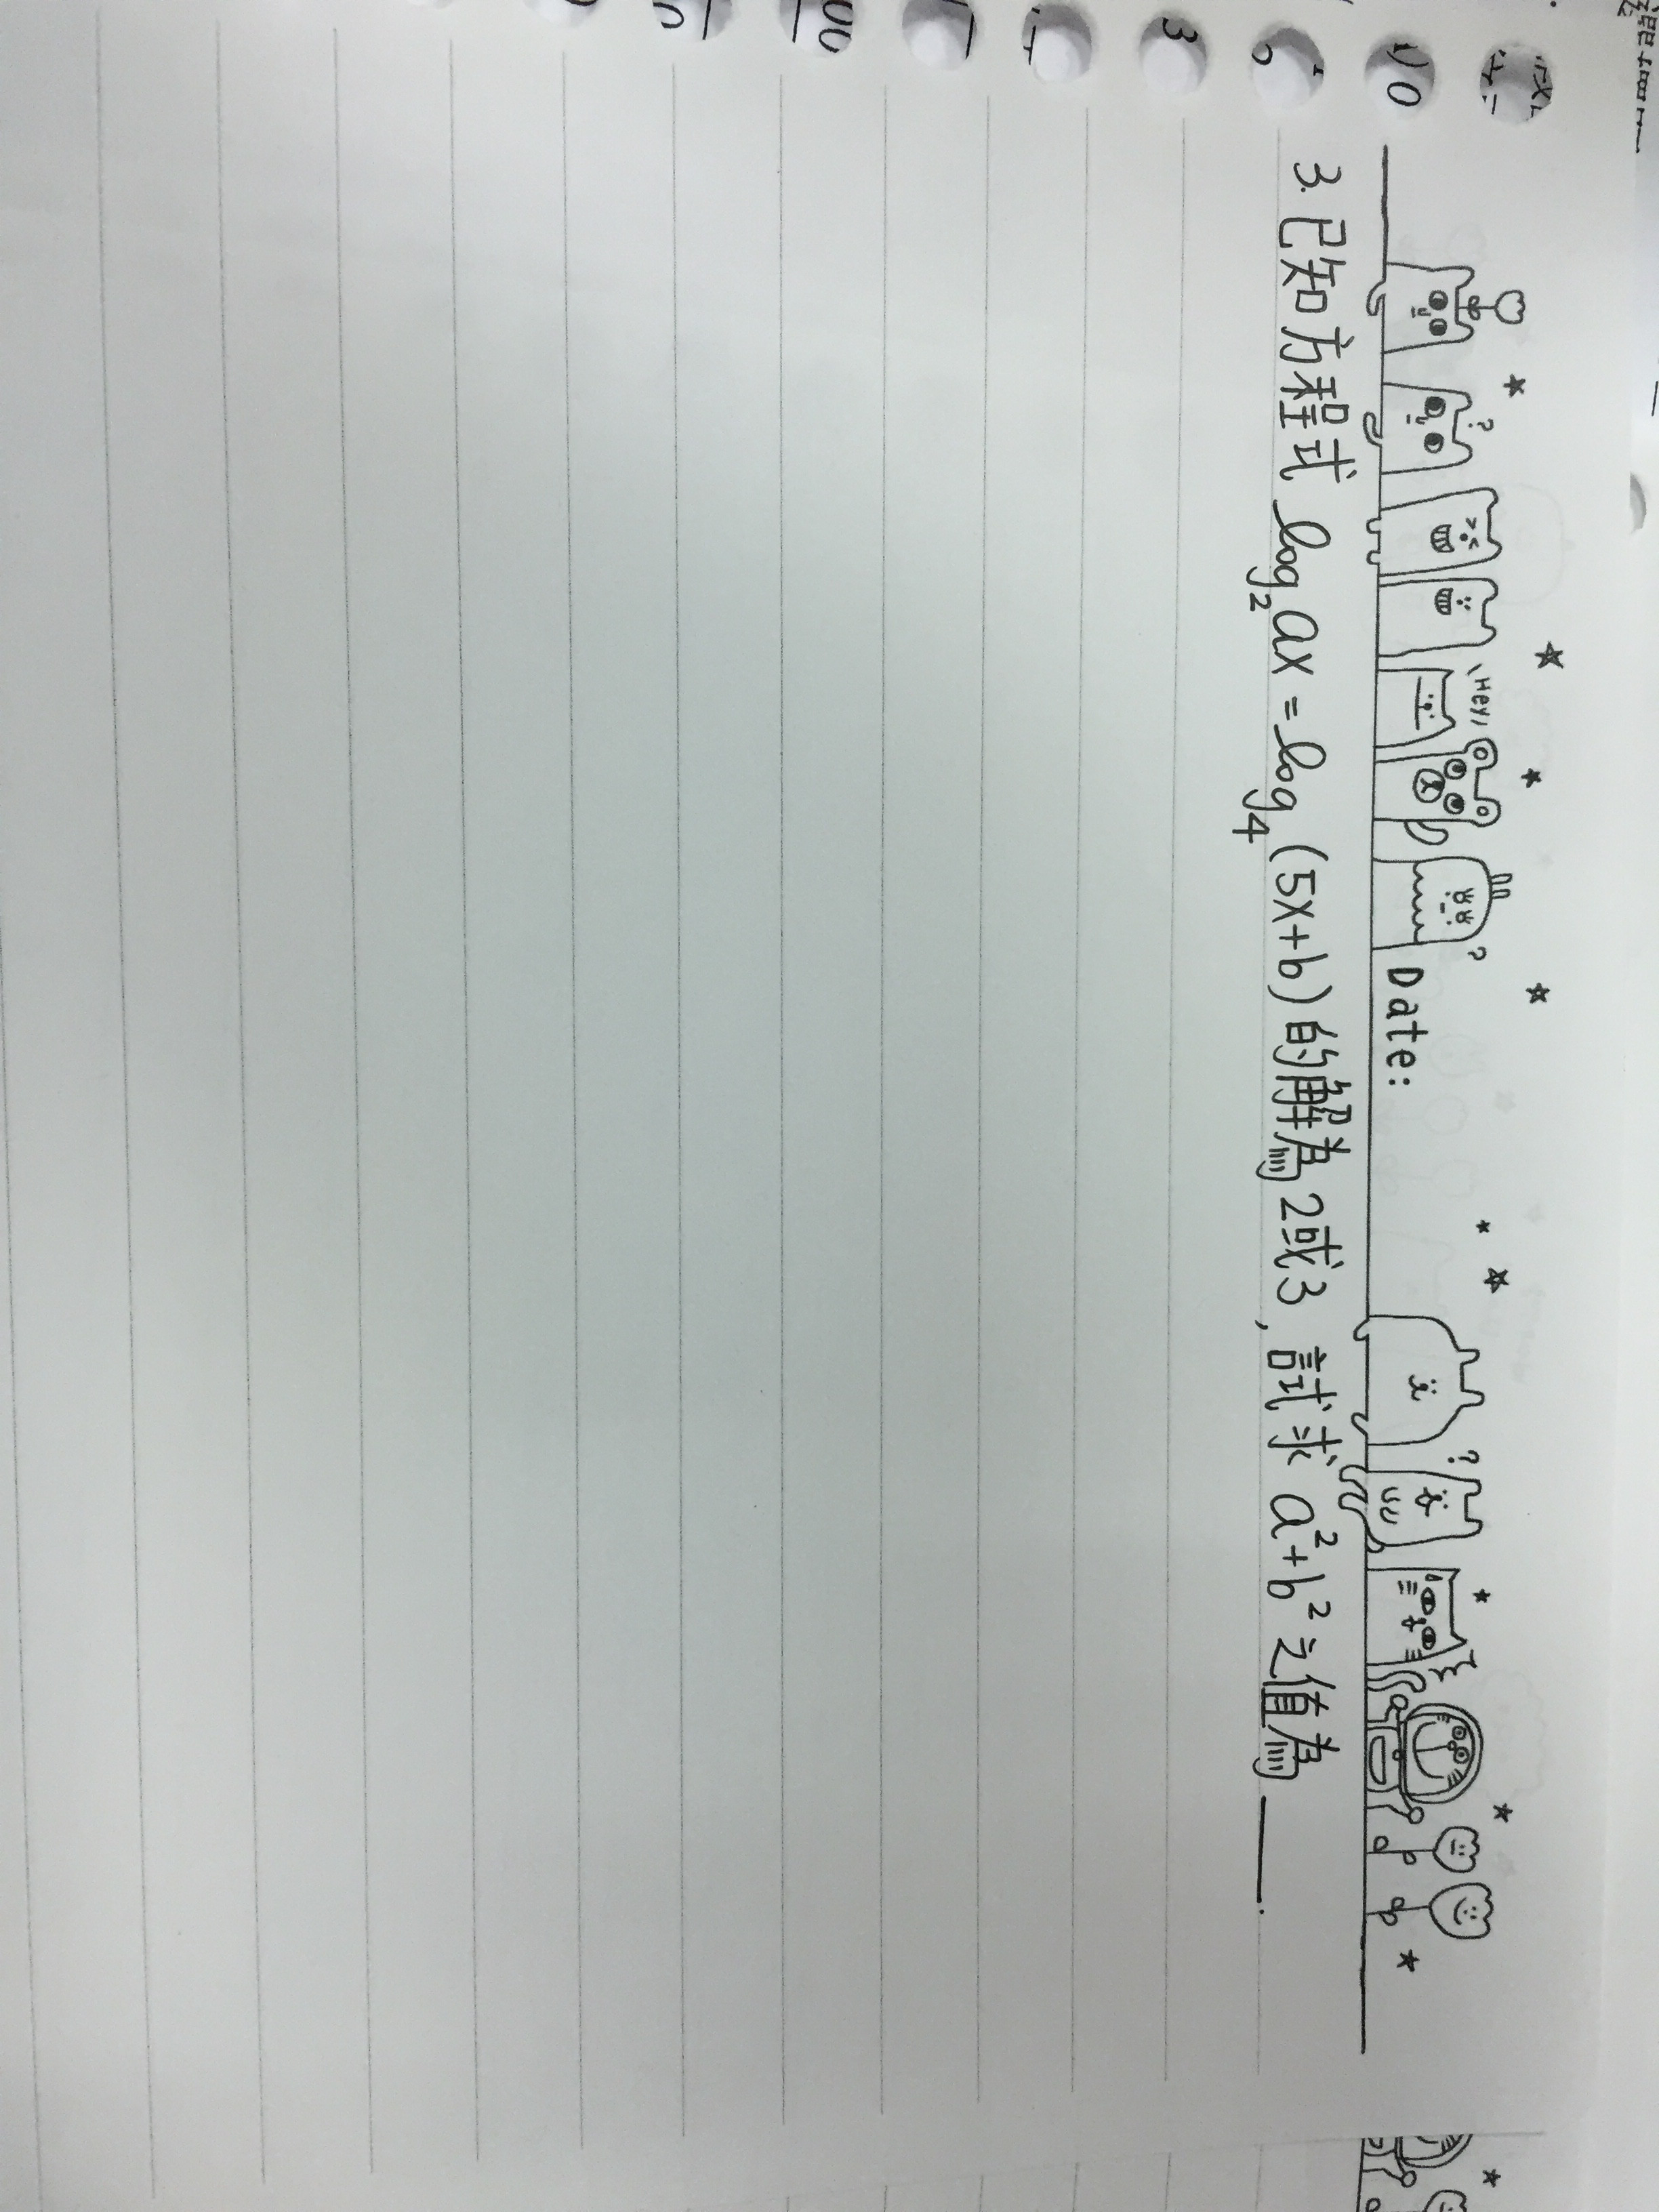 Hey,
Date:
3. 已知方程式 log₂ax = log₄(5x+b) 的解為2或3, 試求 a²+b² 之值為____.